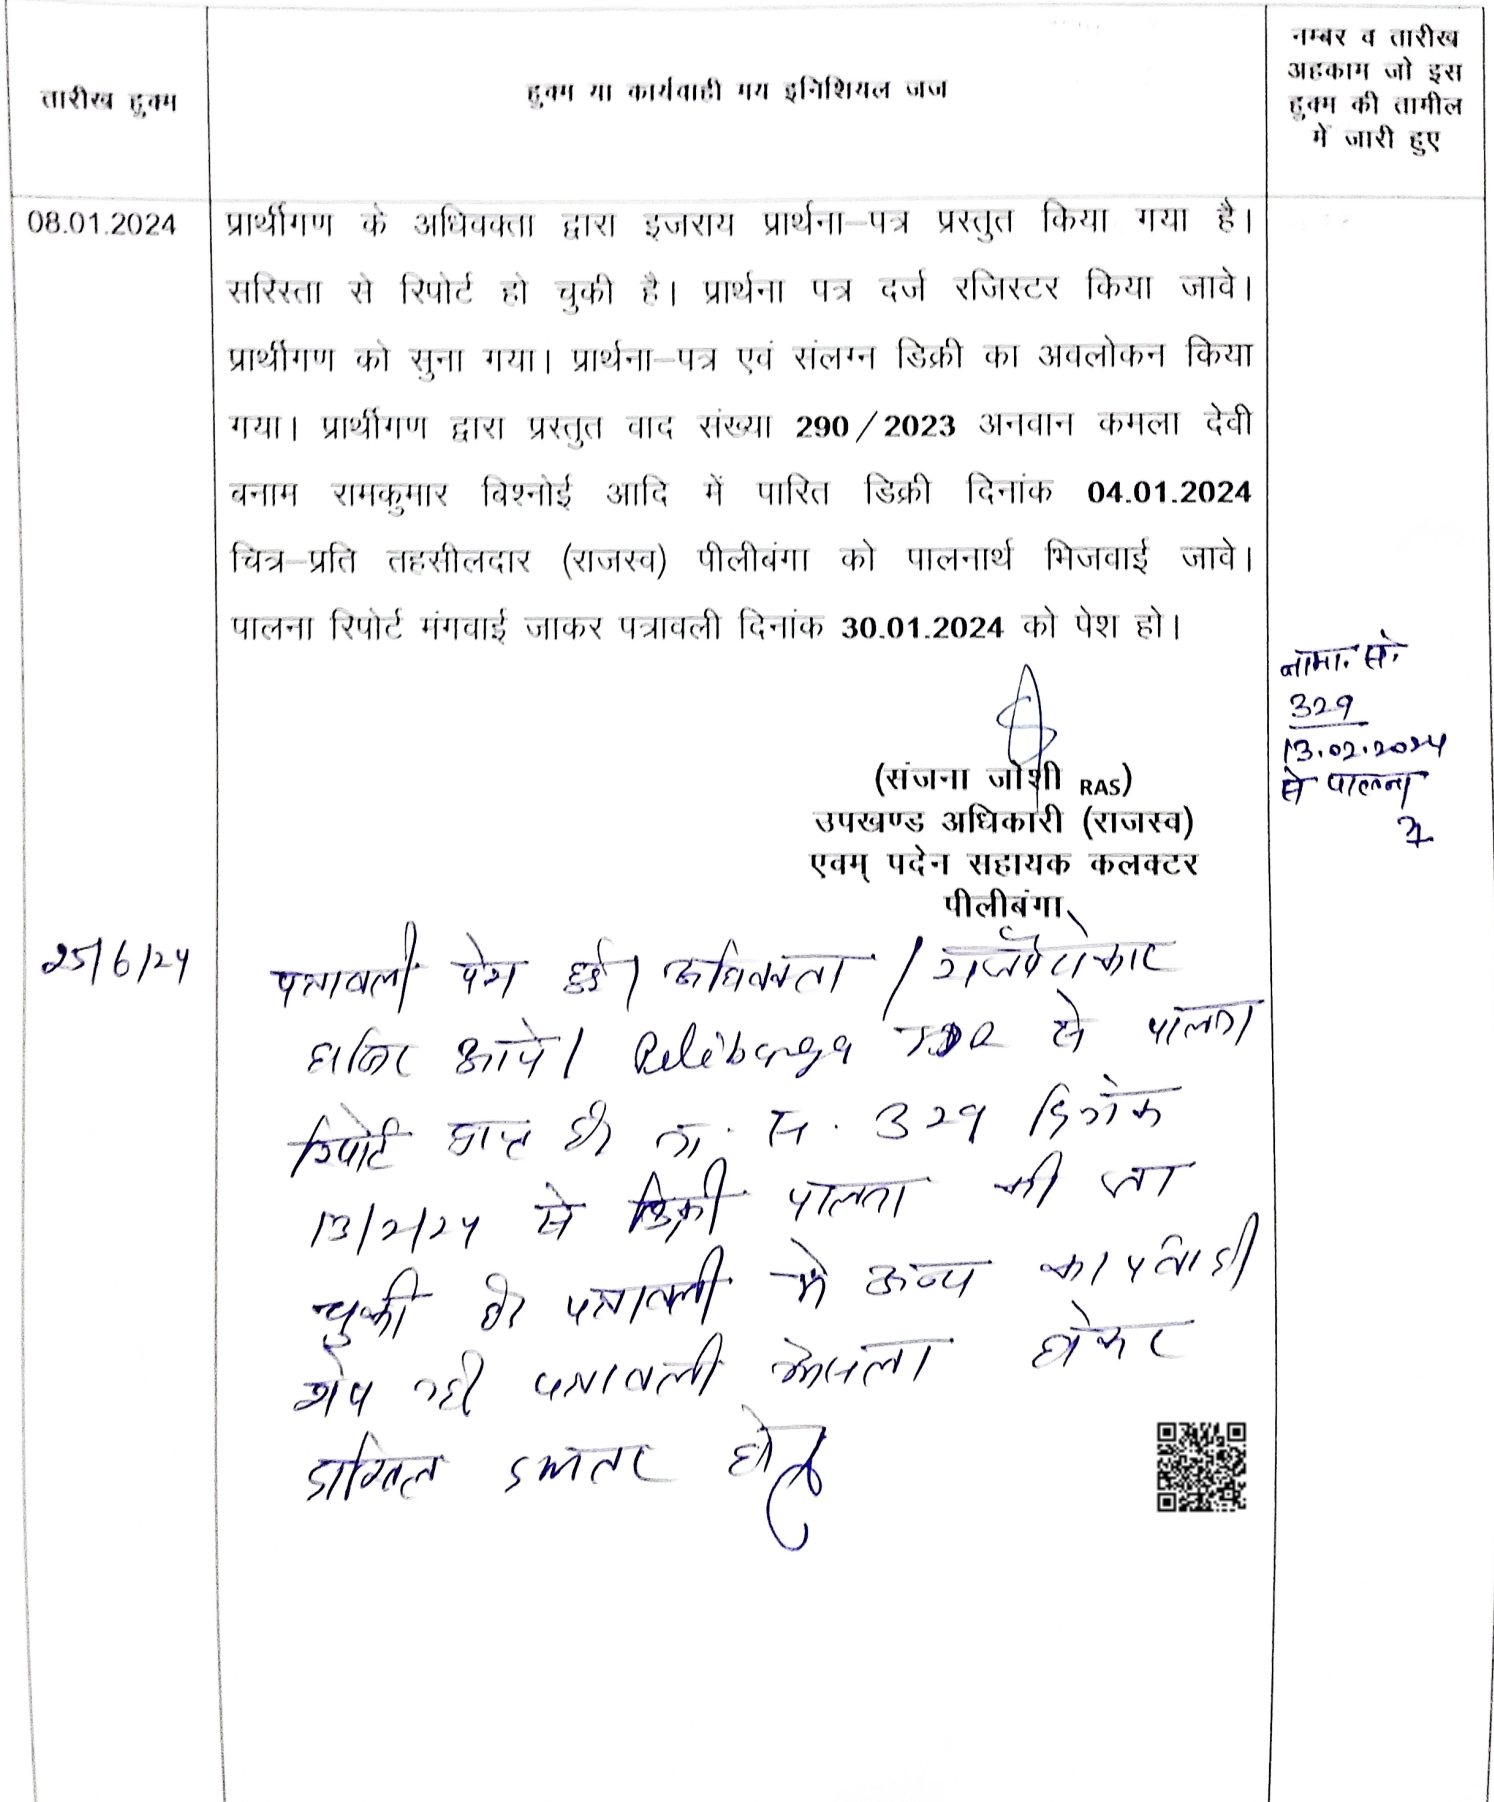 तारीख हुक्म
हुक्म या कार्यवाही मय इनिशियल जज
नम्बर व तारीख
अहकाम जो इस
हुक्म की तामील
में जारी हुए
08.01.2024
प्रार्थीगण के अधिवक्ता द्वारा इजराय प्रार्थना–पत्र प्रस्तुत किया गया है।
सरिस्ता से रिपोर्ट हो चुकी है। प्रार्थना पत्र दर्ज रजिस्टर किया जावे।
प्रार्थीगण को सुना गया। प्रार्थना–पत्र एवं संलग्न डिक्री का अवलोकन किया
गया। प्रार्थीगण द्वारा प्रस्तुत वाद संख्या 290/2023 अनवान कमला देवी
बनाम रामकुमार बिश्नोई आदि में पारित डिक्री दिनांक 04.01.2024
चित्र–प्रति तहसीलदार (राजस्व) पीलीबंगा को पालनार्थ भिजवाई जावे।
पालना रिपोर्ट मंगवाई जाकर पत्रावली दिनांक 30.01.2024 को पेश हो।
नामा. सं.
329
13.02.2024
से पालना
(संजना जोशी RAS)
उपखण्ड अधिकारी (राजस्व)
एवम् पदेन सहायक कलक्टर
पीलीबंगा
25/6/24
पत्रावली पेश हुई। अधिवक्ता / राजपैरोकार
हाजिर आये। Pelibanga TDR से पालना
रिपोर्ट प्राप्त है। ना. सं. 329 दिनांक
13/2/24 से डिक्री पालना की जा
चुकी है। पत्रावली में अन्य कार्यवाही
शेष नहीं पत्रावली फैसला होकर
दाखिल दफ्तर हो।